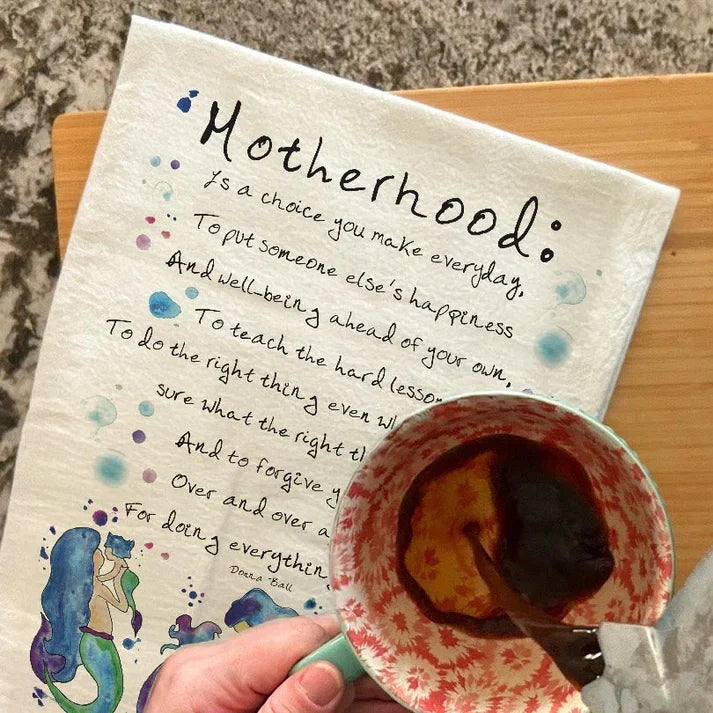 Motherhood:
Is a choice you make everyday,
To put someone else's happiness
And well-being ahead of your own,
To teach the hard
To do the right thing even
sure what the right
And to forgive
Over and over
For doing
Donna Ball